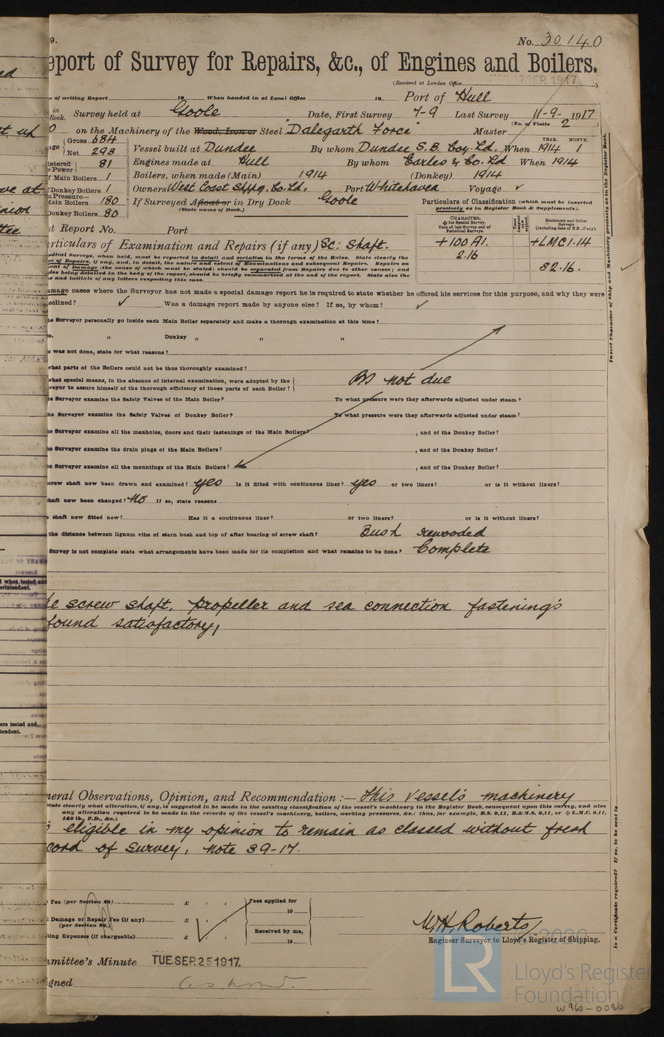 No. 30140
eport of Survey for Repairs, &c., of Engines and Boilers.
(Received at London Office
7 SEP. 1917
of writing Report 19 When handed in at Local Office 19 Port of Hull
Survey held at Goole Date, First Survey 7-9 Last Survey 11-9-1917
(No. of Visits 2)
on the Machinery of the Wood, Iron or Steel "Dalegarth Force" Master
Gross 684
Vessel built at Dundee By whom Dundee S.B. Coy. Ld. When 1914 1
YEAR. MONTH.
298
81 Engines made at Hull By whom Earles & Co. Ld When 1914
Main Boilers 1 Boilers, when made (Main) 1914 (Donkey) 1914
Donkey Boilers 1 Owners West Coast Shppg. Co. Ld. Port Whitehaven Voyage
Main Boilers 180 If Surveyed Afloat or in Dry Dock Goole
(State name of Dock.)
Donkey Boilers 80
Particulars of Classification (which must be inserted precisely as in Register Book & Supplements).
t Report No. Port
CHARACTER.
+100 A1. +LMC 1.14
2.16
S2.16.
rticulars of Examination and Repairs (if any) Sc: Shaft.
amage cases where the Surveyor has not made a special damage report he is required to state whether he offered his services for this purpose, and why they were
eclined? Was a damage report made by anyone else? If so, by whom?
he Surveyor personally go inside each Main Boiler separately and make a thorough examination at this time?
" Donkey " " "
was not done, state for what reasons?
what parts of the Boilers could not be thus thoroughly examined?
what special means, in the absence of internal examination, were adopted by the
veyor to assure himself of the thorough efficiency of those parts of each Boiler?
BS not due
he Surveyor examine the Safety Valves of the Main Boiler? To what pressure were they afterwards adjusted under steam?
he Surveyor examine the Safety Valves of Donkey Boiler? To what pressure were they afterwards adjusted under steam?
he Surveyor examine all the manholes, doors and their fastenings of the Main Boilers? , and of the Donkey Boiler?
he Surveyor examine the drain plugs of the Main Boilers? , and of the Donkey Boiler?
he Surveyor examine all the mountings of the Main Boilers? , and of the Donkey Boiler?
crew shaft now been drawn and examined? yes Is it fitted with continuous liner? yes or two liners? or is it without liners?
haft now been changed? No If so, state reasons
shaft now fitted new? Has it a continuous liner? or two liners? or is it without liners?
the distance between lignum vitæ of stern bush and top of after bearing of screw shaft? Bush rewooded
Survey is not complete state what arrangements have been made for its completion and what remains to be done? Complete
he screw shaft, propeller and sea connection fastenings
found satisfactory,
neral Observations, Opinion, and Recommendation :— This Vessel's machinery
(State clearly what alteration, if any, is suggested to be made in the existing classification of the vessel's machinery in the Register Book, consequent upon this survey, and also
any alteration required to be made in the records of the vessel's machinery, boilers, working pressures, &c.: thus, for example,
eligible in my opinion to remain as classed without fresh
cord of Survey, Note S9-17.
Fee (per Section) £ Fees applied for
19
Damage or Repair Fee (if any) £
(per Section) Received by me,
ling Expenses (if chargeable) £ 19
W.H. Roberts
Engineer Surveyor to Lloyd's Register of Shipping.
mmittee's Minute TUE. SEP. 25 1917.
gned
Is a Certificate required? If so, to be sent to
© 2020
LR
Lloyd's Register
Foundation
W960-0096